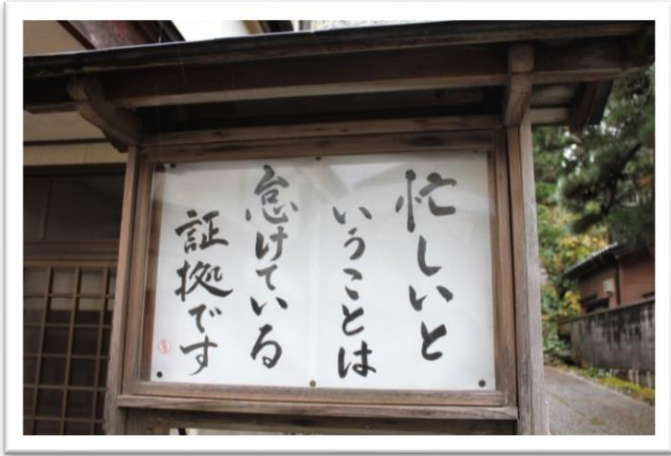 忙しいと
いうことは
怠けている
証拠です